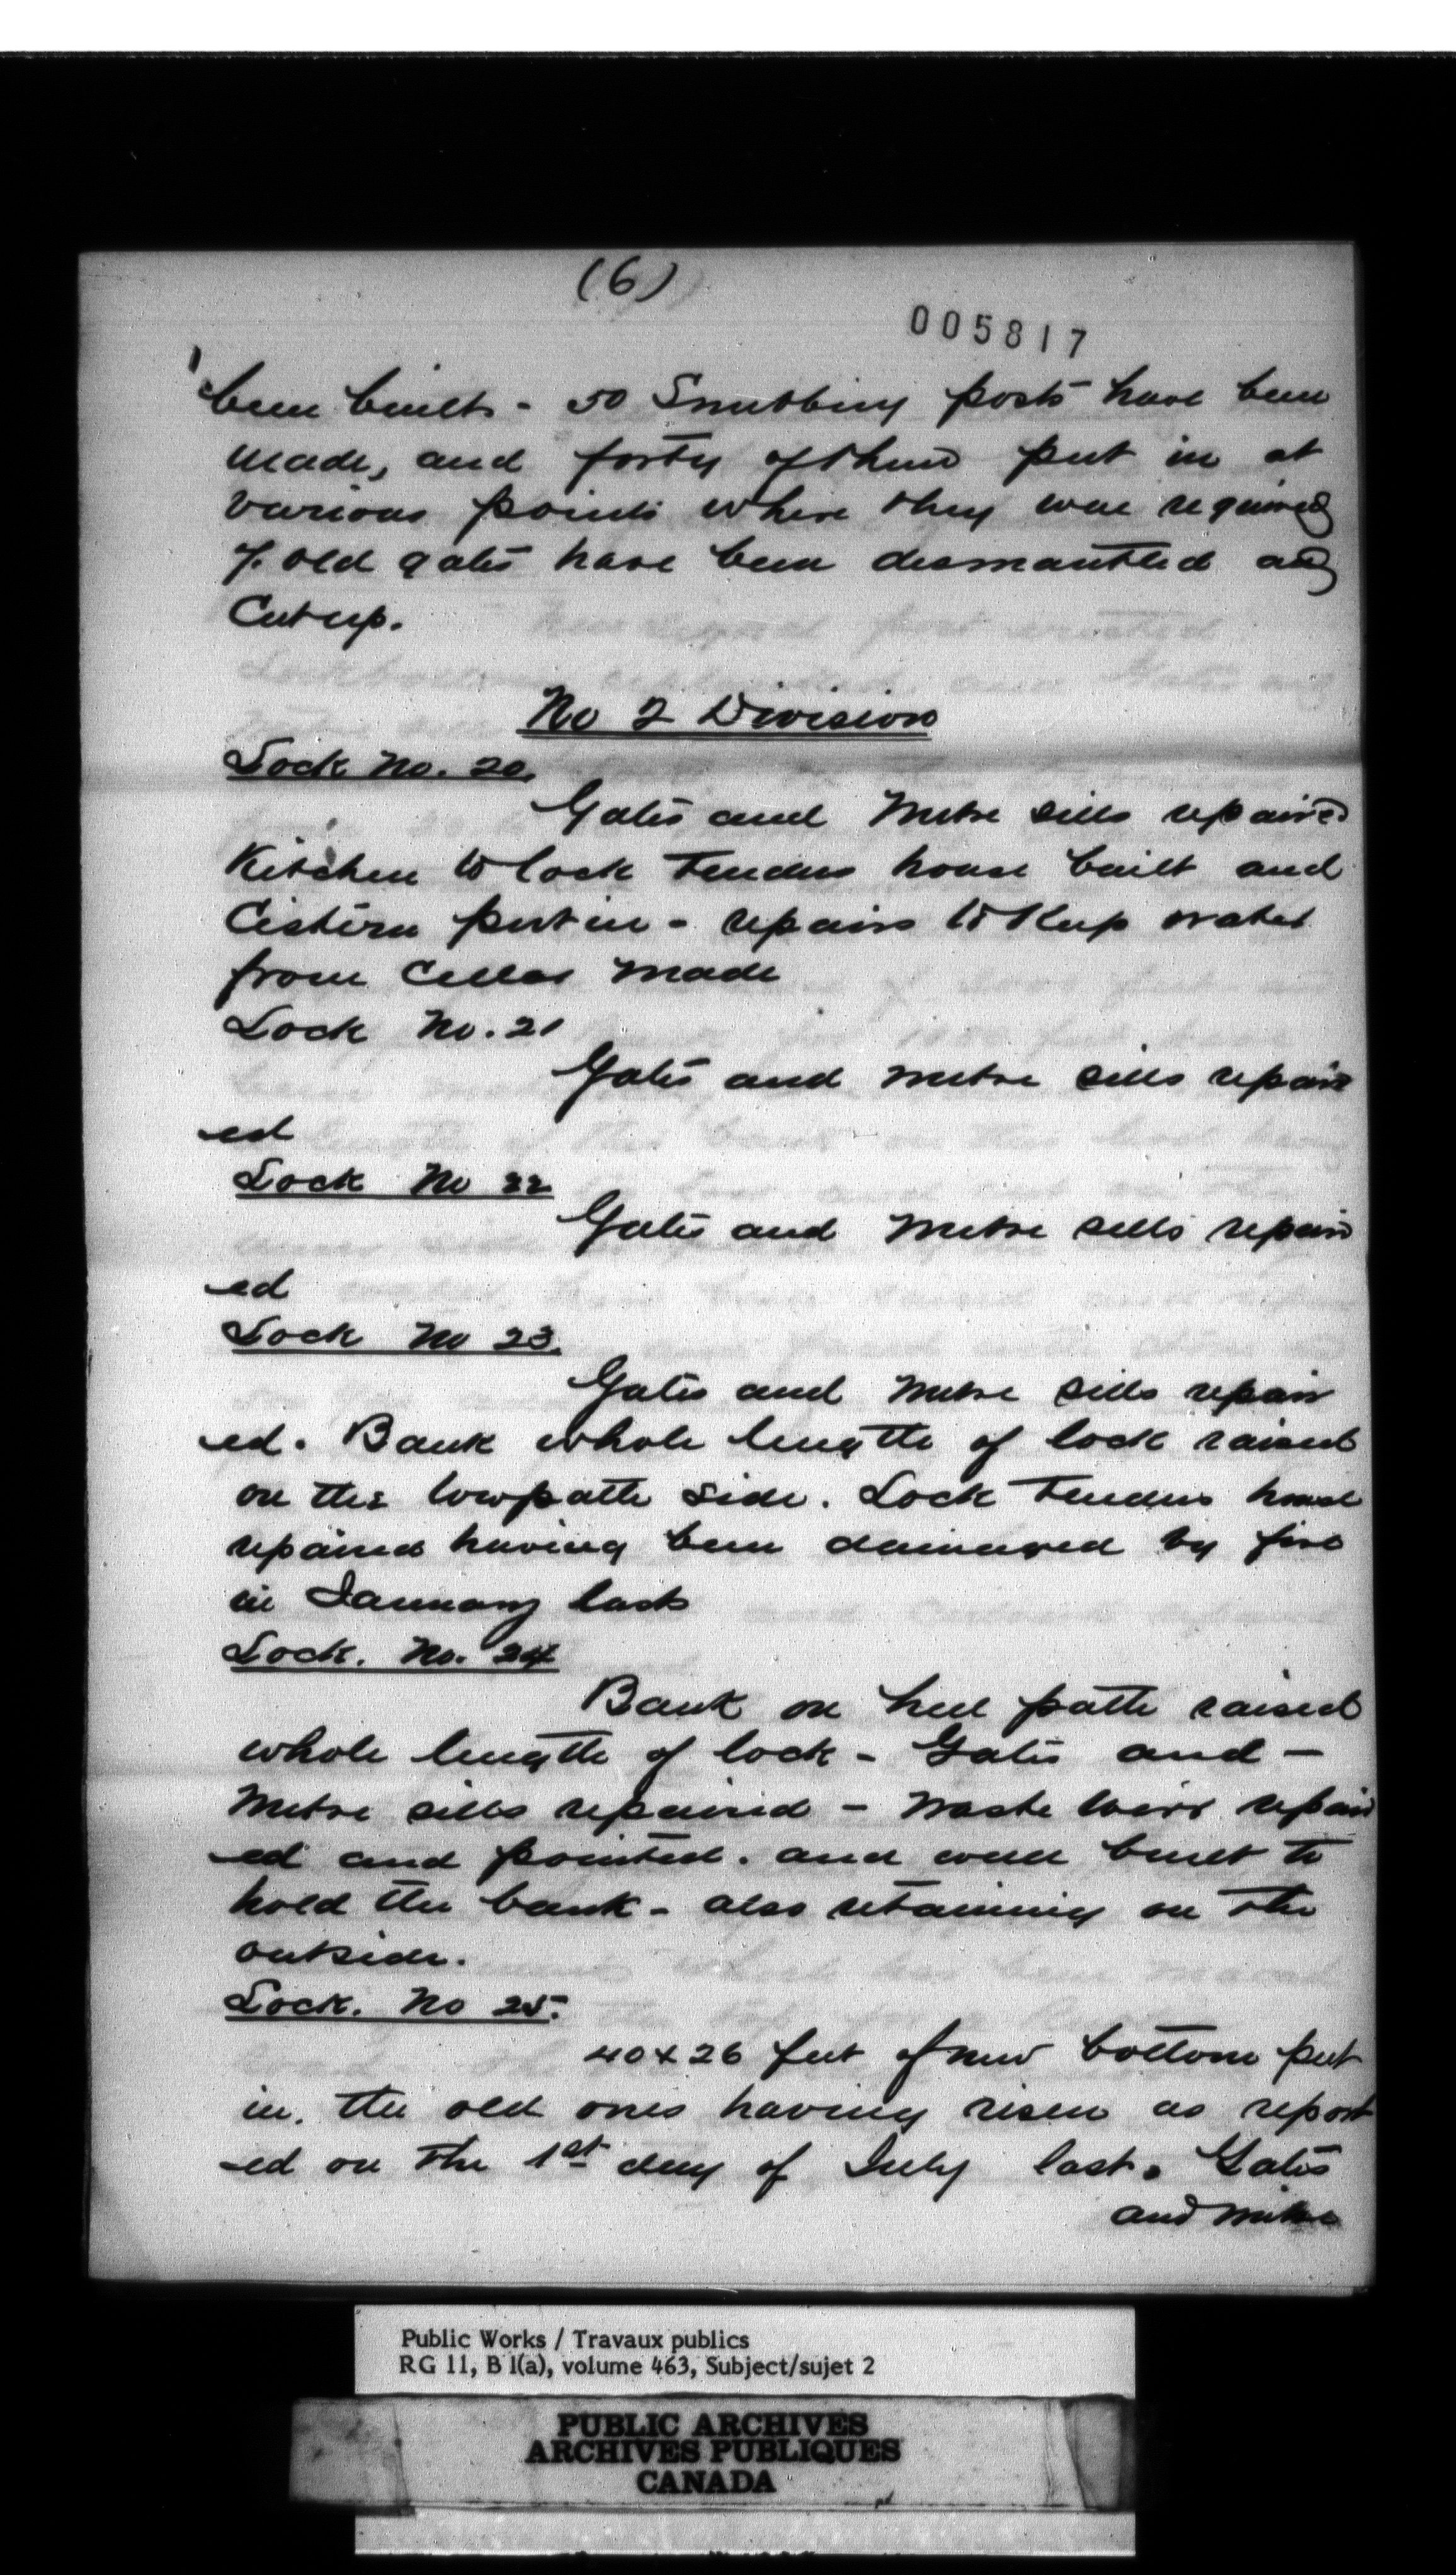 (6)
005817
been built - 50 Snubbing posts have been
made, and forty of them put in at
various points where they were required
7. old gates have been dismantled and
Cut up.
No 2 Division
Lock No. 20.
Gates and Mitre sills repaired
Kitchen to lock Tenders house built and
Cistern put in - repairs to Keep water
from Cellar made
Lock No. 21
Gates and mitre sills repair
ed
Lock No 22
Gates and mitre sills repair
ed
Lock No 23.
Gates and mitre sills repair
ed. Bank whole length of lock raised
on the towpath side. Lock Tenders house
repaired having been damaged by fire
in January last
Lock. No. 24
Bank on heel path raised
whole length of lock - Gates and -
Mitre sills repaired - waste weir repair
ed and pointed. and wall built to
hold the bank - also retaining on the
outside.
Lock. No 25.
40 x 26 feet of new bottom put
in. the old ones having risen as report
ed on the 1st day of July last. Gates
and mitre
Public Works / Travaux publics
RG 11, B 1(a), volume 463, Subject/sujet 2
PUBLIC ARCHIVES
ARCHIVES PUBLIQUES
CANADA